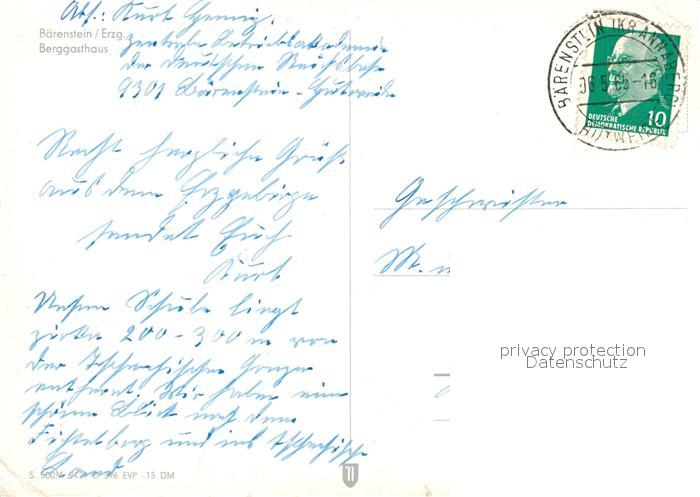 Abs.: Kurt
Bärenstein / Erzg.
Berggasthaus
Zentrale Betriebsakademie
der Deutschen Reichsbahn
9301 Bärenstein - Hutweide
BÄRENSTEIN (KR ANNABERG)
06.5.65-16
HUTWEIDE
DEUTSCHE
DEMOKRATISCHE REPUBLIK
10
Recht herzliche Grüße
aus dem Erzgebirge
sendet Euch
Kurt
Geschwister
M.
Unsere Schule liegt
zirka 200-300 m von
der Tschechischen Grenze
entfernt. Wir haben einen
schönen Blick nach dem
Fichtelberg und ins tschechische
Land
privacy protection
Datenschutz
EVP -.15 DM